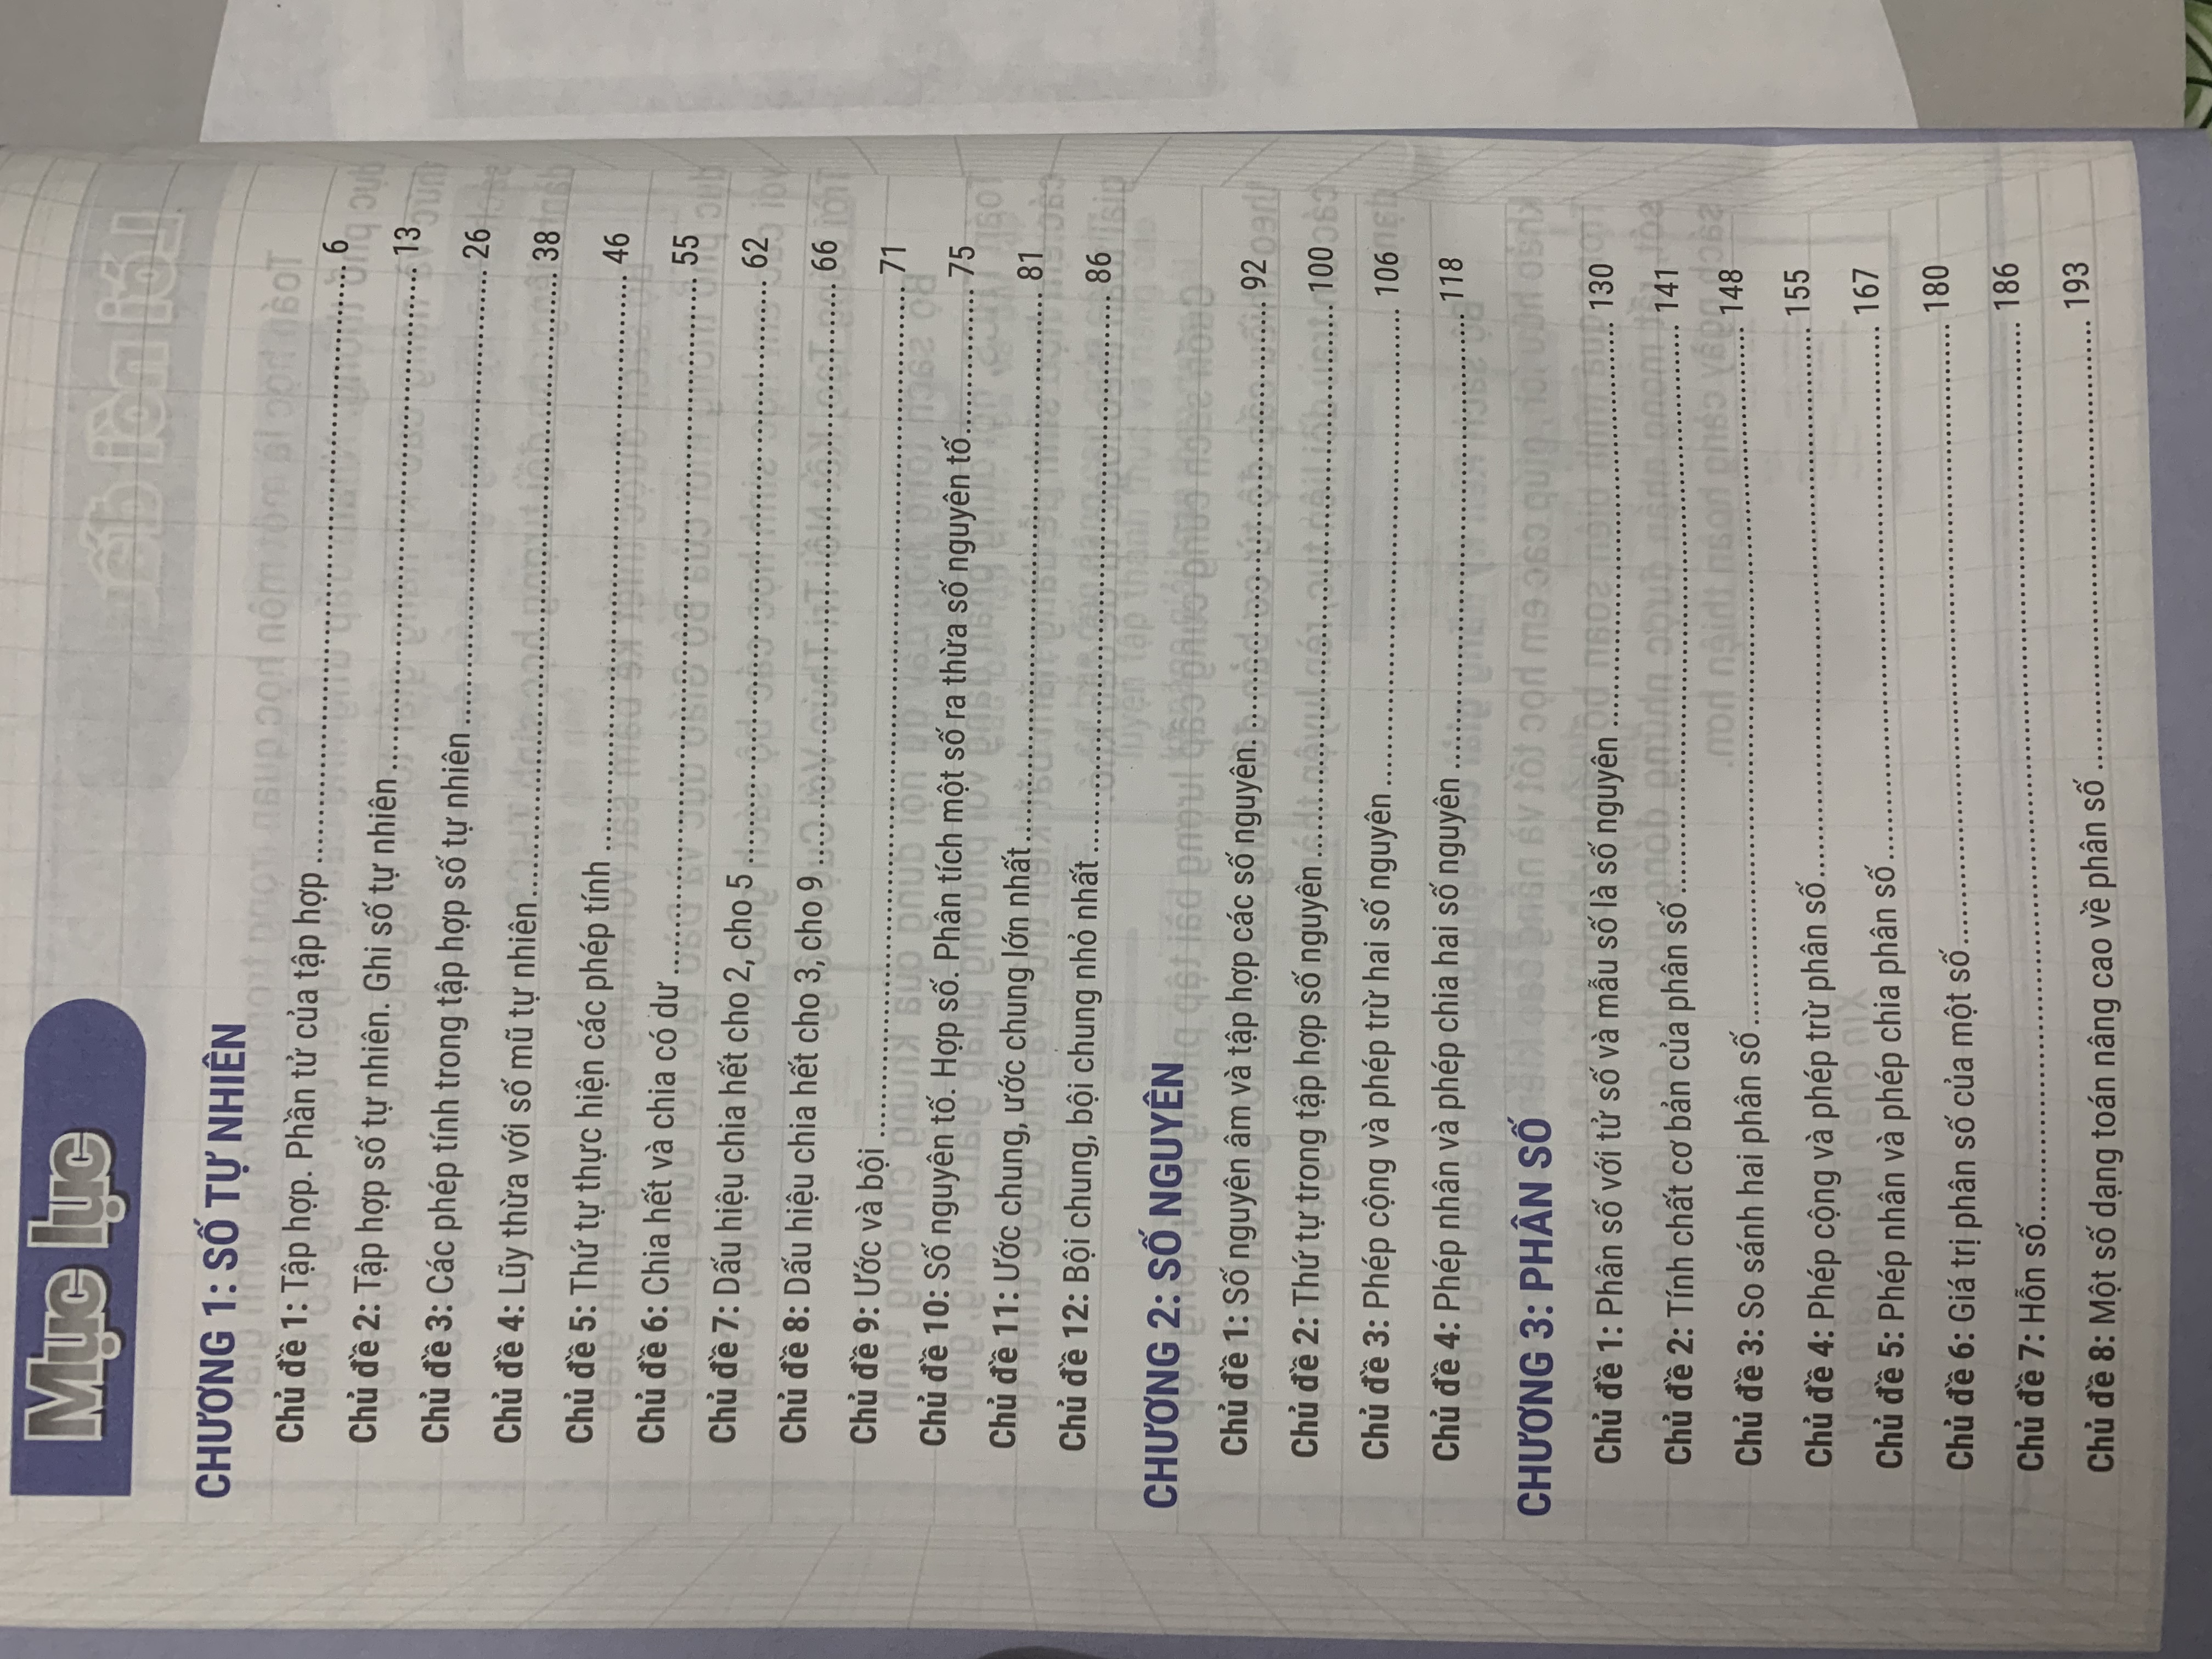 Mục lục
CHƯƠNG 1: SỐ TỰ NHIÊN
Chủ đề 1: Tập hợp. Phần tử của tập hợp ........ 6
Chủ đề 2: Tập hợp số tự nhiên. Ghi số tự nhiên ........ 13
Chủ đề 3: Các phép tính trong tập hợp số tự nhiên ........ 26
Chủ đề 4: Lũy thừa với số mũ tự nhiên ........ 38
Chủ đề 5: Thứ tự thực hiện các phép tính ........ 46
Chủ đề 6: Chia hết và chia có dư ........ 55
Chủ đề 7: Dấu hiệu chia hết cho 2, cho 5 ........ 62
Chủ đề 8: Dấu hiệu chia hết cho 3, cho 9 ........ 66
Chủ đề 9: Ước và bội ........ 71
Chủ đề 10: Số nguyên tố. Hợp số. Phân tích một số ra thừa số nguyên tố ........ 75
Chủ đề 11: Ước chung, ước chung lớn nhất ........ 81
Chủ đề 12: Bội chung, bội chung nhỏ nhất ........ 86
CHƯƠNG 2: SỐ NGUYÊN
Chủ đề 1: Số nguyên âm và tập hợp các số nguyên ........ 92
Chủ đề 2: Thứ tự trong tập hợp số nguyên ........ 100
Chủ đề 3: Phép cộng và phép trừ hai số nguyên ........ 106
Chủ đề 4: Phép nhân và phép chia hai số nguyên ........ 118
CHƯƠNG 3: PHÂN SỐ
Chủ đề 1: Phân số với tử số và mẫu số là số nguyên ........ 130
Chủ đề 2: Tính chất cơ bản của phân số ........ 141
Chủ đề 3: So sánh hai phân số ........ 148
Chủ đề 4: Phép cộng và phép trừ phân số ........ 155
Chủ đề 5: Phép nhân và phép chia phân số ........ 167
Chủ đề 6: Giá trị phân số của một số ........ 180
Chủ đề 7: Hỗn số ........ 186
Chủ đề 8: Một số dạng toán nâng cao về phân số ........ 193